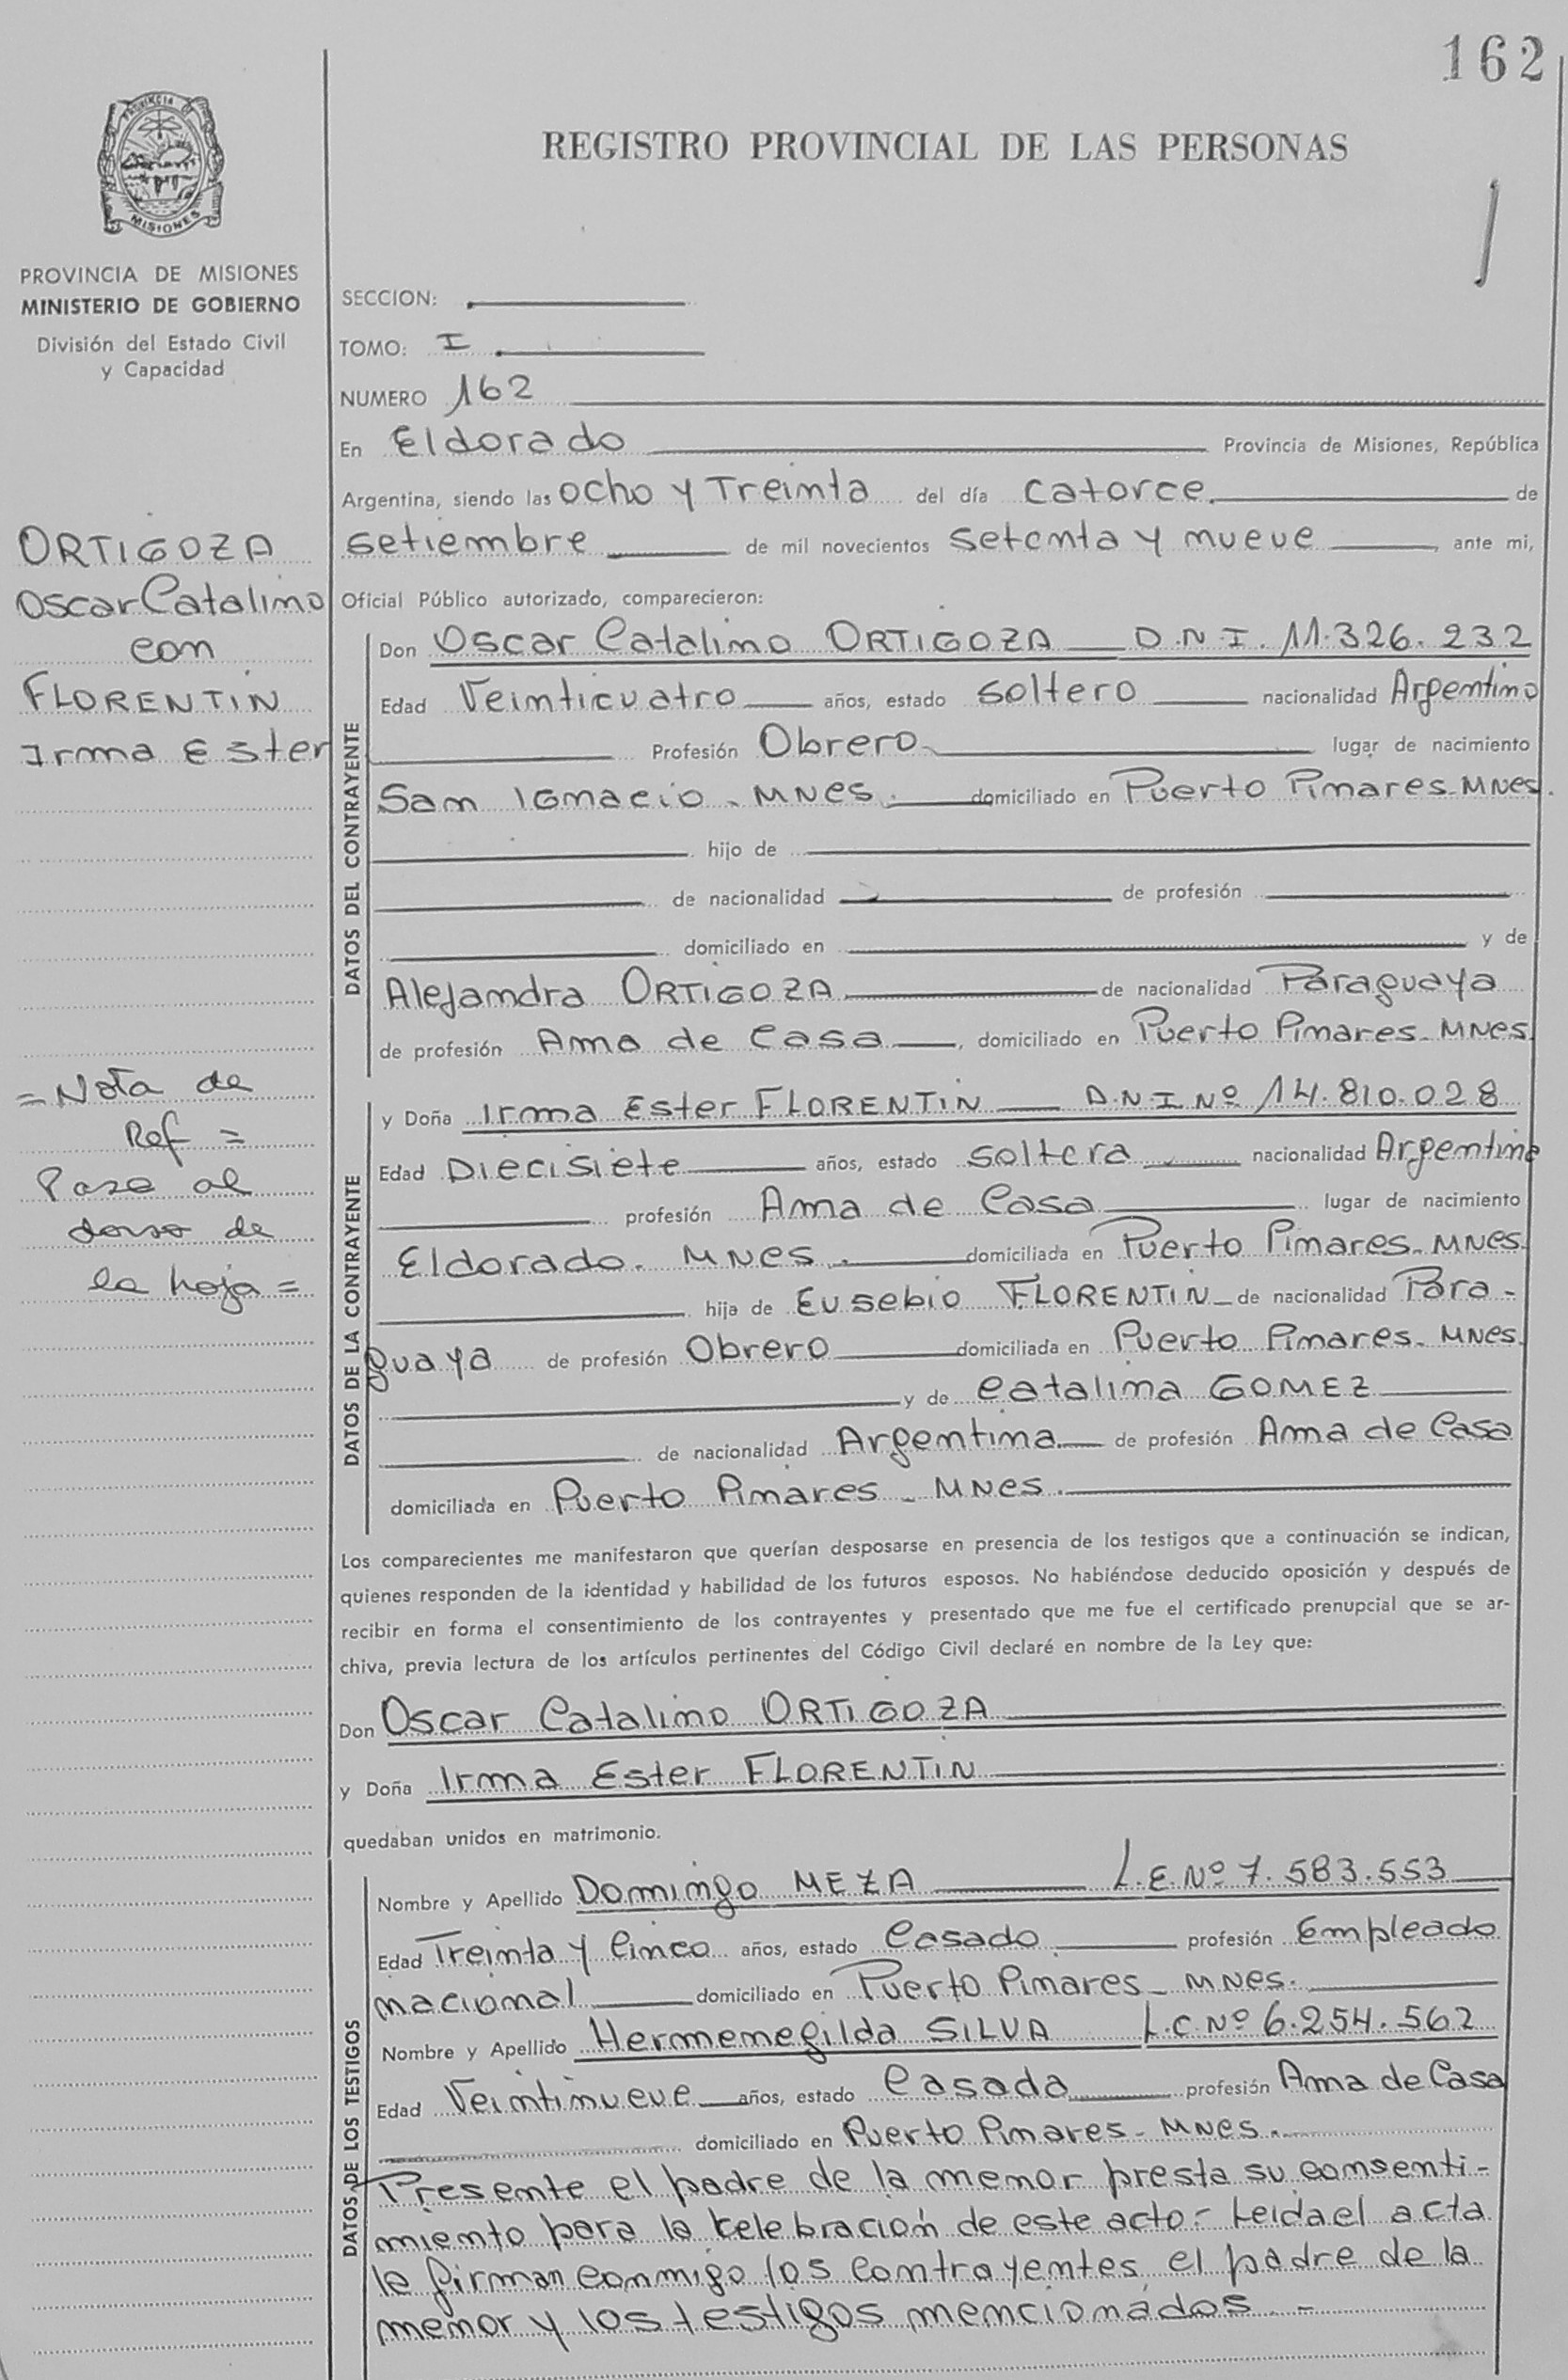 162
REGISTRO PROVINCIAL DE LAS PERSONAS
PROVINCIA
MISIONES
PROVINCIA DE MISIONES
MINISTERIO DE GOBIERNO
División del Estado Civil
y Capacidad
ORTIGOZA
Oscar Catalino
con
FLORENTIN
Irma Ester
= Nota de
Ref =
Pase al
dorso de
la hoja =
SECCION:
TOMO: I
NUMERO 162
En Eldorado Provincia de Misiones, República
Argentina, siendo las ocho y Treinta del día catorce. de
setiembre de mil novecientos setenta y nueve, ante mi,
Oficial Público autorizado, comparecieron:
DATOS DEL CONTRAYENTE
Don Oscar Catalino ORTIGOZA D.N.I. 11.326.232
Edad Veinticuatro años, estado soltero nacionalidad Argentino
Profesión Obrero lugar de nacimiento
San Ignacio - MNes. domiciliado en Puerto Pinares-MNes.
hijo de
de nacionalidad de profesión
domiciliado en y de
Alejandra ORTIGOZA de nacionalidad Paraguaya
de profesión Ama de Casa, domiciliado en Puerto Pinares-MNes
DATOS DE LA CONTRAYENTE
y Doña Irma Ester FLORENTIN D.N.I Nº 14.810.028
Edad Diecisiete años, estado soltera nacionalidad Argentina
profesión Ama de Casa lugar de nacimiento
Eldorado. MNes. domiciliada en Puerto Pinares-MNes.
hija de Eusebio FLORENTIN de nacionalidad Para-
guaya de profesión Obrero domiciliada en Puerto Pinares-MNes.
y de Catalina GOMEZ
de nacionalidad Argentina de profesión Ama de Casa
domiciliada en Puerto Pinares - MNes.
Los comparecientes me manifestaron que querían desposarse en presencia de los testigos que a continuación se indican,
quienes responden de la identidad y habilidad de los futuros esposos. No habiéndose deducido oposición y después de
recibir en forma el consentimiento de los contrayentes y presentado que me fue el certificado prenupcial que se ar-
chiva, previa lectura de los artículos pertinentes del Código Civil declaré en nombre de la Ley que:
Don Oscar Catalino ORTIGOZA
y Doña Irma Ester FLORENTIN
quedaban unidos en matrimonio.
DATOS DE LOS TESTIGOS
Nombre y Apellido Domingo MEZA L.E.Nº 7.583.553
Edad Treinta y Cinco años, estado Casado profesión Empleado
nacional domiciliado en Puerto Pinares - MNes.
Nombre y Apellido Hermenegilda SILVA L.C.Nº 6.254.562
Edad Veintinueve años, estado Casada profesión Ama de Casa
domiciliado en Puerto Pinares - MNes.
Presente el padre de la menor presta su consenti-
miento para la celebración de este acto.- Leida el acta
la firman conmigo los contrayentes, el padre de la
menor y los testigos mencionados.-